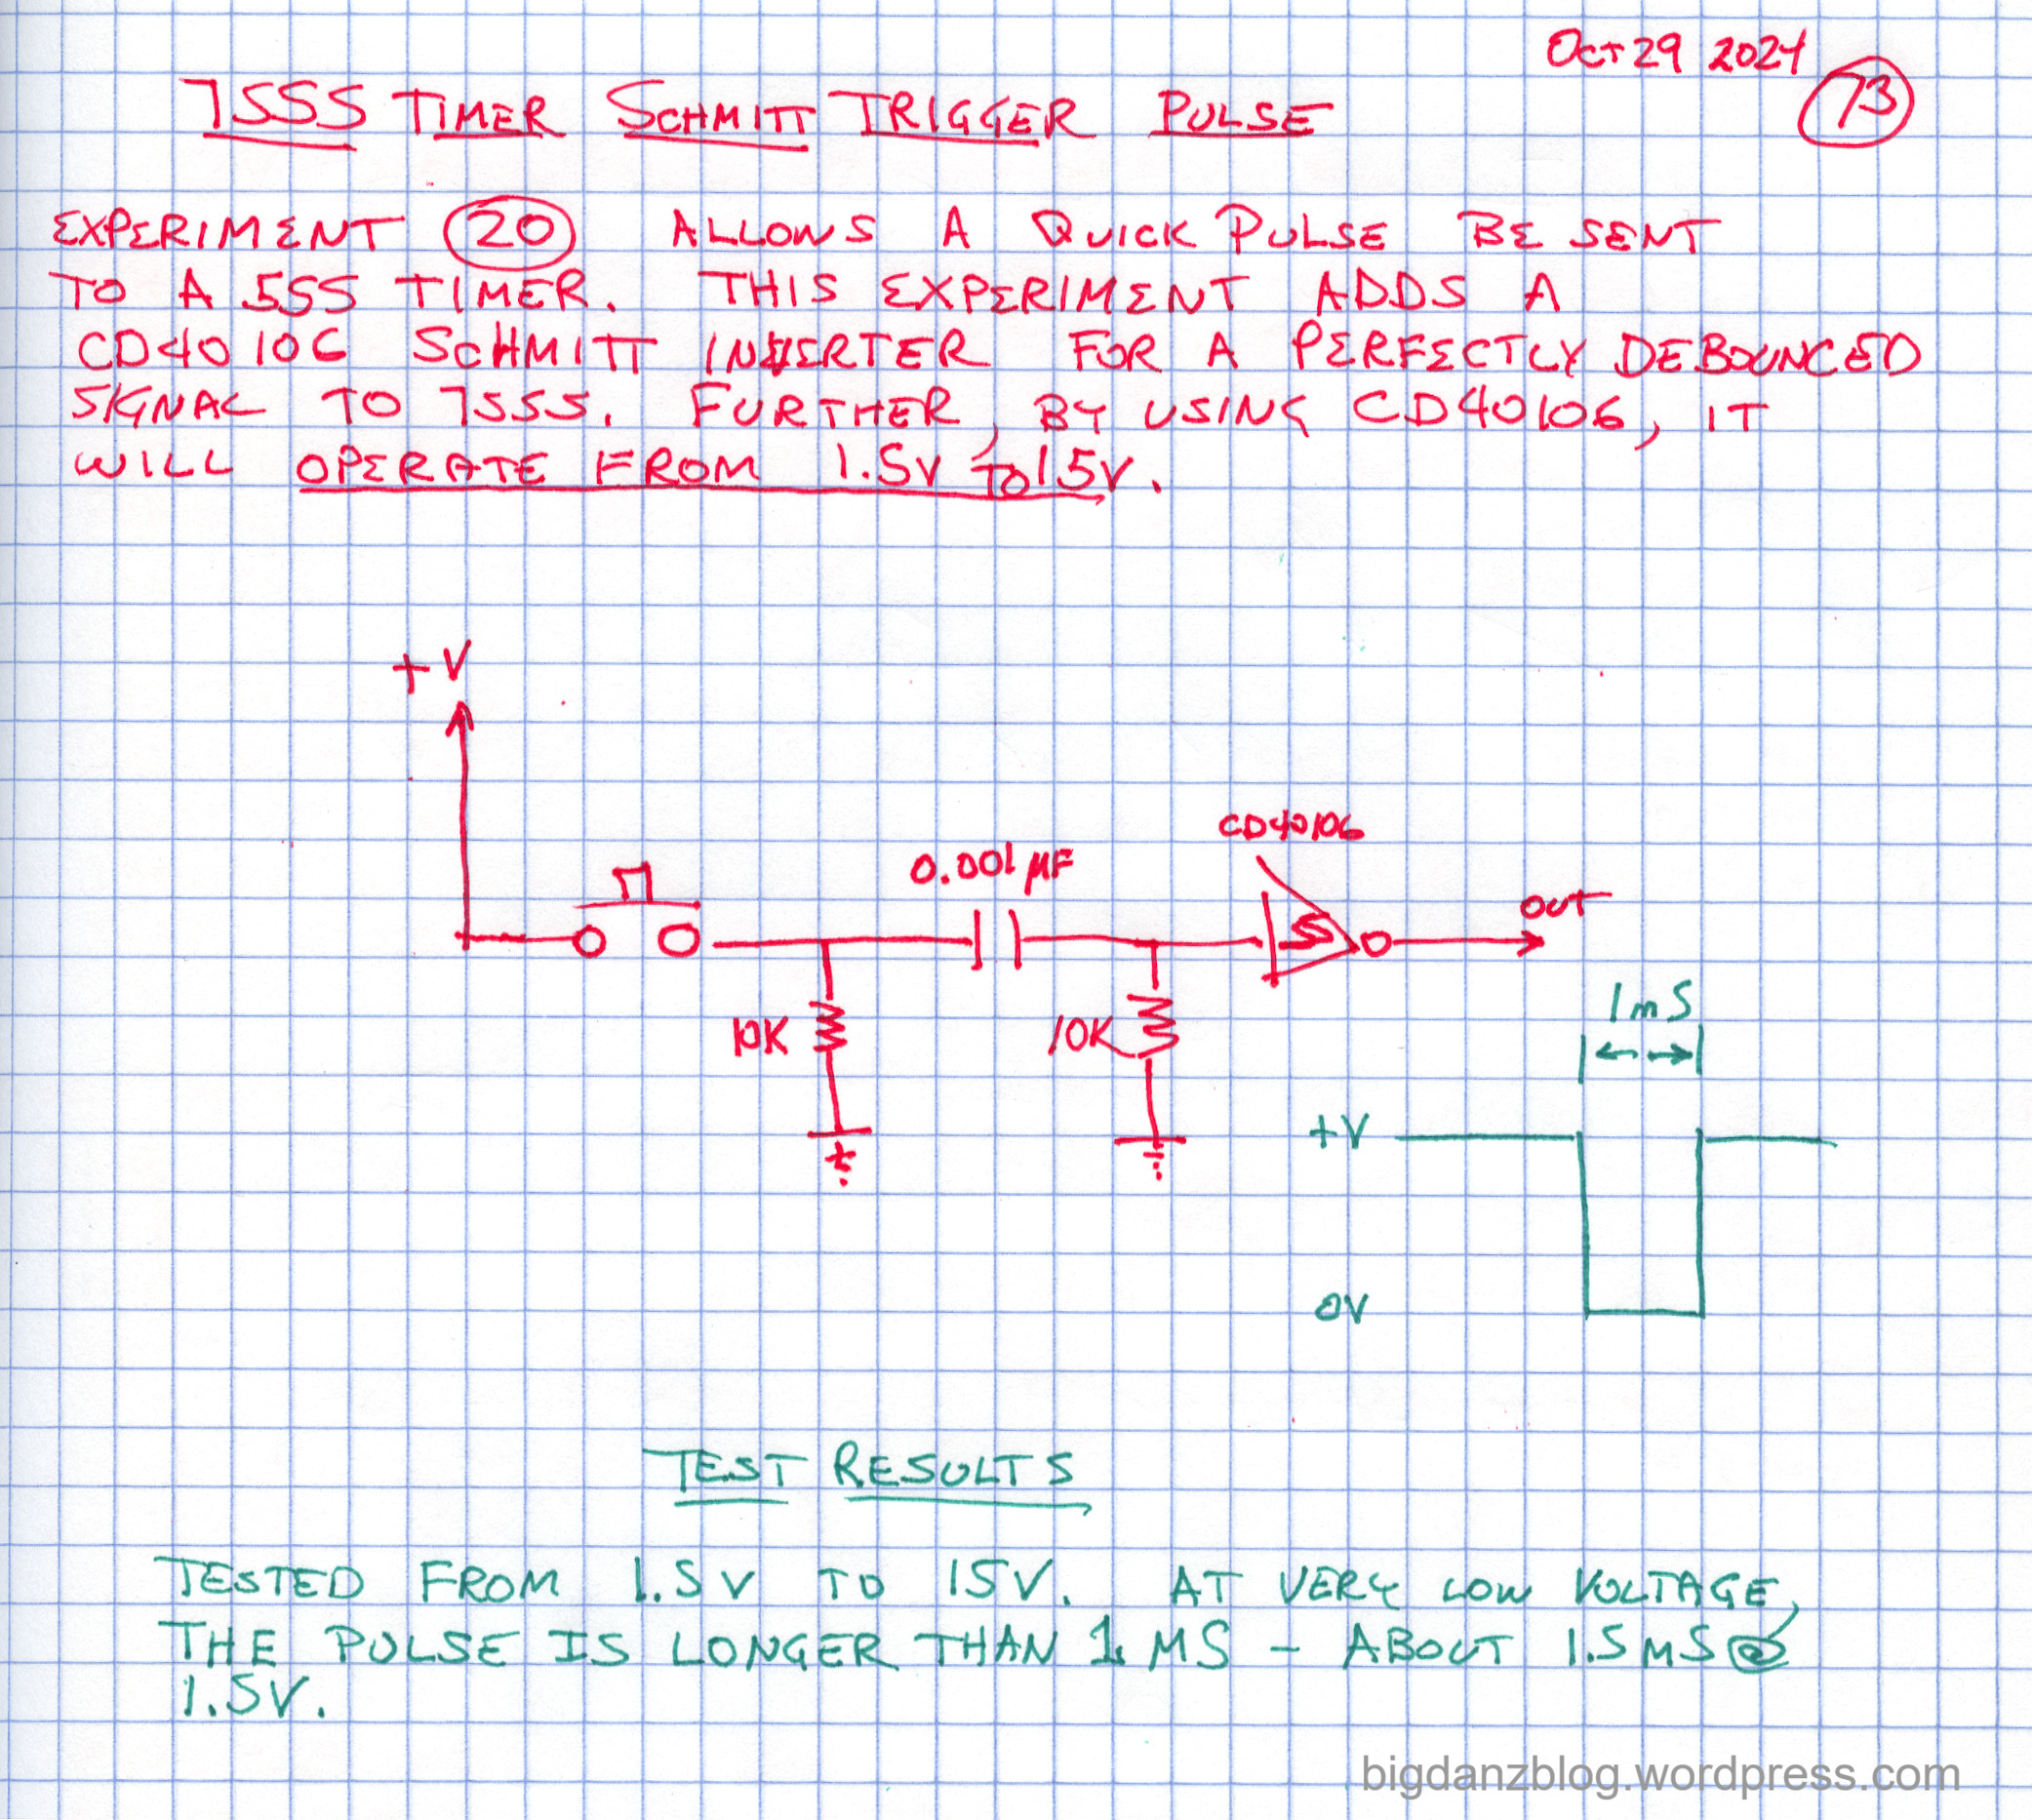 Oct 29 2024
73
7555 TIMER SCHMITT TRIGGER PULSE
EXPERIMENT 20 ALLOWS A QUICK PULSE BE SENT
TO A 555 TIMER. THIS EXPERIMENT ADDS A
CD40106 SCHMITT INVERTER FOR A PERFECTLY DEBOUNCED
SIGNAL TO 7555. FURTHER, BY USING CD40106, IT
WILL OPERATE FROM 1.5V TO 15V.
+V
CD40106
0.001 µF
S
OUT
10K
10K
1mS
+V
0V
TEST RESULTS
TESTED FROM 1.5V TO 15V. AT VERY LOW VOLTAGE,
THE PULSE IS LONGER THAN 1 MS - ABOUT 1.5MS @
1.5V.
bigdanzblog.wordpress.com